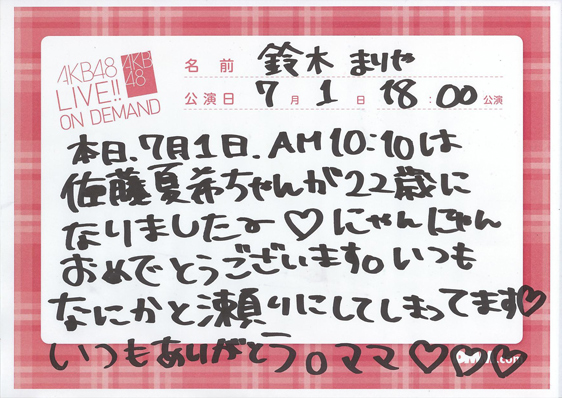 AKB48
LIVE!!
ON DEMAND
AKB
48
名前 鈴木 まりや
公演日 7月 1日 18:00公演
本日、7月1日、AM10:10は
佐藤夏希ちゃんが22歳に
なりましたー♡にゃんにゃん
おめでとうございます。いつも
なにかと瀬りにしてしまってます♡
いつもありがとう。ママ♡♡♡
.com